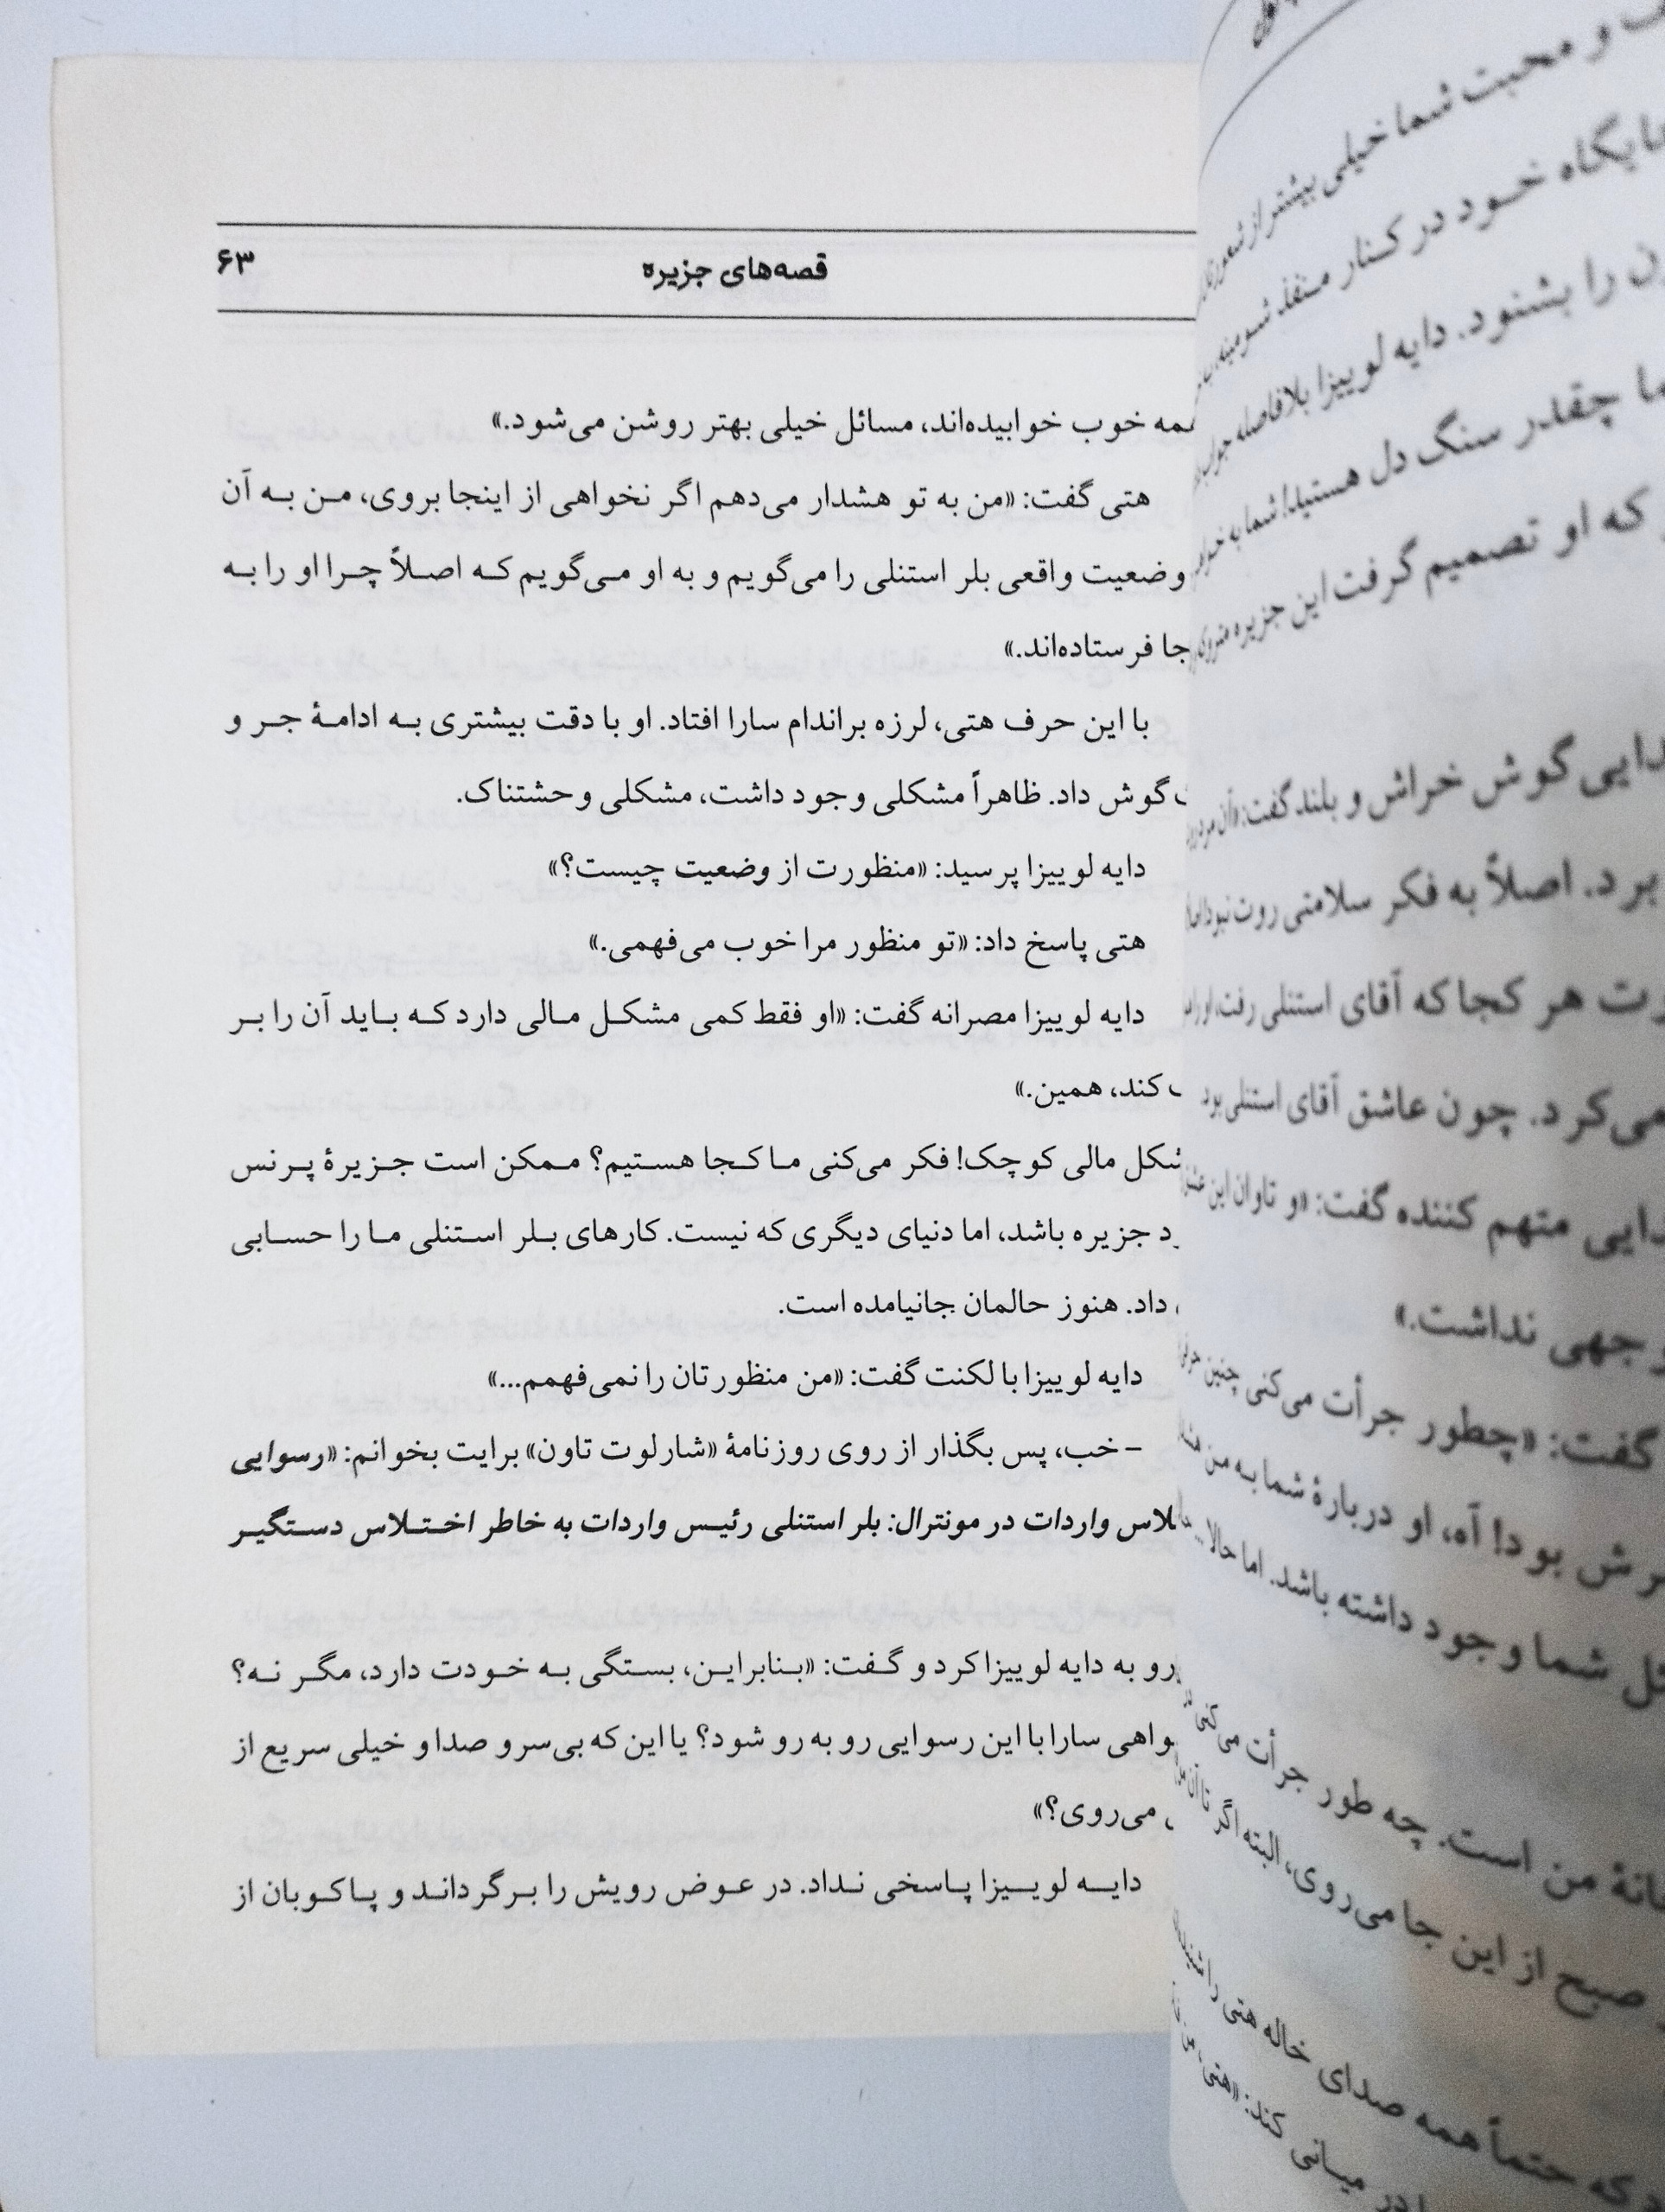 قصه‌های جزیره ۶۳
خوب خوابیده‌اند، مسائل خیلی بهتر روشن می‌شود.»
هتی گفت: «من به تو هشدار می‌دهم اگر نخواهی از اینجا بروی، من به آن
وضعیت واقعی بلر استنلی را می‌گویم و به او می‌گویم که اصلاً چرا او را به
جا فرستاده‌اند.»
با این حرف هتی، لرزه براندام سارا افتاد. او با دقت بیشتری به ادامهٔ جر و
گوش داد. ظاهراً مشکلی وجود داشت، مشکلی وحشتناک.
دایه لوییزا پرسید: «منظورت از وضعیت چیست؟»
هتی پاسخ داد: «تو منظور مرا خوب می‌فهمی.»
دایه لوییزا مصرانه گفت: «او فقط کمی مشکل مالی دارد که باید آن را بر
کند، همین.»
مالی کوچک! فکر می‌کنی ما کجا هستیم؟ ممکن است جزیرهٔ پرنس
جزیره باشد، اما دنیای دیگری که نیست. کارهای بلر استنلی ما را حسابی
داد. هنوز حالمان جانیامده است.
دایه لوییزا با لکنت گفت: «من منظورتان را نمی‌فهمم...»
– خب، پس بگذار از روی روزنامهٔ «شارلوت تاون» برایت بخوانم: «رسوایی
واردات در مونترال: بلر استنلی رئیس واردات به خاطر اختلاس دستگیر
رو به دایه لوییزا کرد و گفت: «بنابراین، بستگی به خودت دارد، مگر نه؟
سارا با این رسوایی رو به رو شود؟ یا این که بی‌سرو صدا و خیلی سریع از
می‌روی؟»
دایه لوییزا پاسخی نداد. در عوض رویش را برگرداند و پاکوبان از
و محبت شما خیلی بیشتر از
خود در کنار منفذ شومینه
را بشنود. دایه لوییزا بلافاصله
چقدر سنگ دل هستید! شما به
که او تصمیم گرفت این جزیره
گوش خراش و بلند گفت: «آن مرد
اصلاً به فکر سلامتی روت نبود
هر کجا که آقای استنلی رفت،
می‌کرد. چون عاشق آقای استنلی بود
متهم کننده گفت: «و تاوان این
نداشت.»
گفت: «چطور جرأت می‌کنی چنین
بود! آه، او دربارهٔ شما به من
شما وجود داشته باشد. اما حالا...
من است. چه طور جرأت می‌کنی
صبح از این جا می‌روی، البته اگر تا آن
که حتماً همه صدای خاله هتی را
میانی کند: «هتی، من